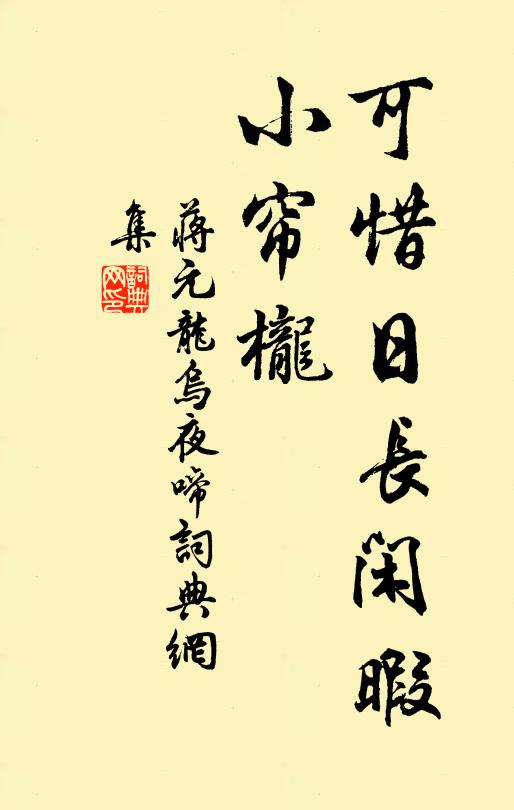 可惜日長閑暇
小帘櫳
蔣元龍烏夜啼詞典網
集
詞典網印